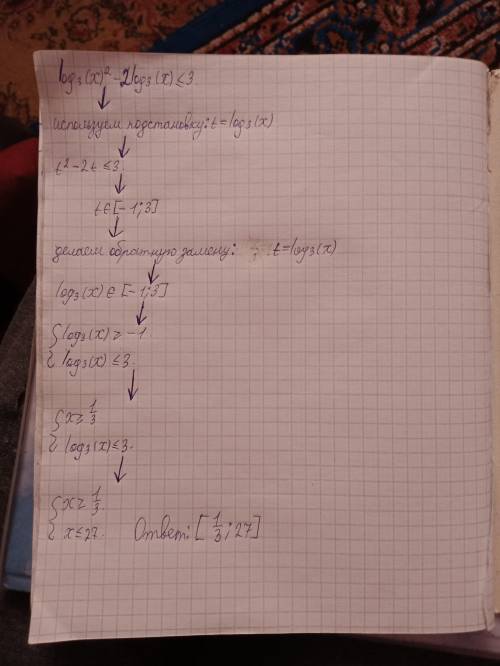 log₃(x)² - 2log₃(x) ≤ 3
↓
используем подстановку: t = log₃(x)
↓
t² - 2t ≤ 3.
↓
t ∈ [-1; 3]
↓
делаем обратную замену: t = log₃(x)
↓
log₃(x) ∈ [-1; 3]
↓
{ log₃(x) ≥ -1
{ log₃(x) ≤ 3.
↓
{ x ≥ 1/3
{ log₃(x) ≤ 3.
↓
{ x ≥ 1/3.
{ x ≤ 27. Ответ: [1/3; 27]